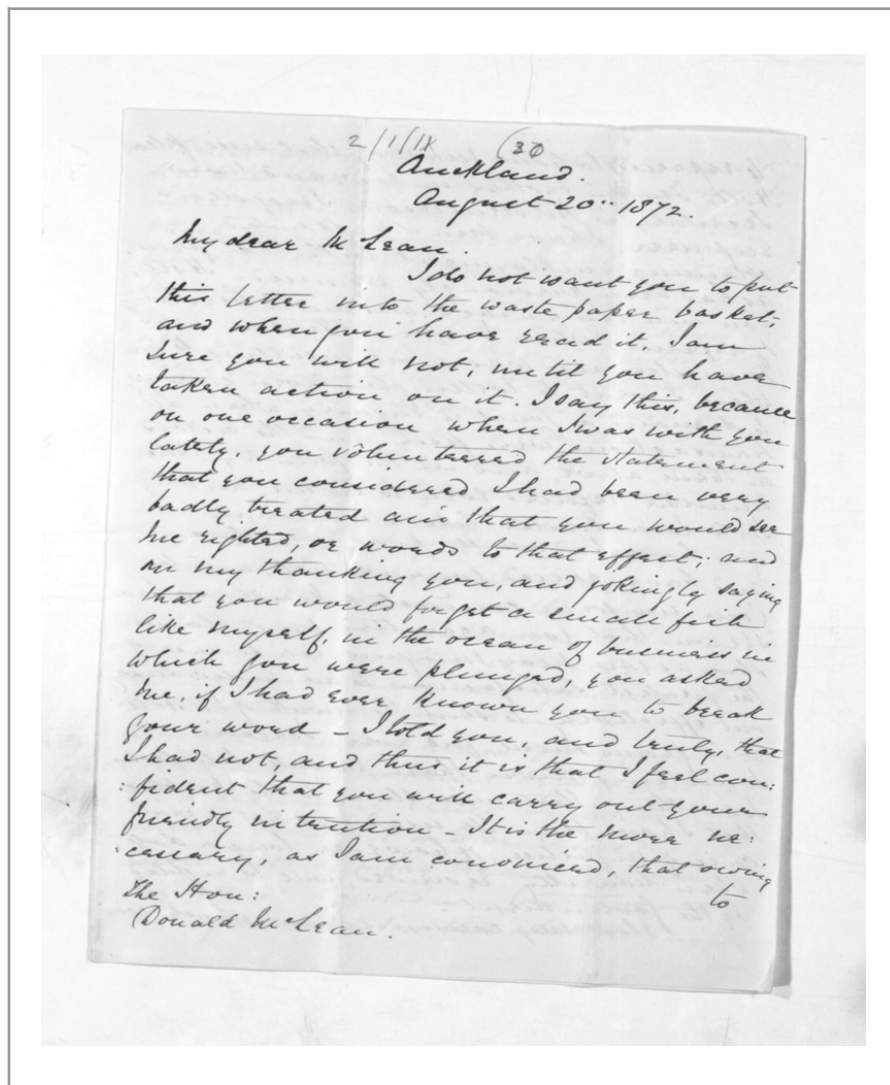 2/1/1X (30
Auckland.
August 20.. 1872.
My dear McLean.
I do not want you to put
this letter into the waste paper basket,
and when you have read it, I am
sure you will not, until you have
taken action on it. I say this, because
on one occasion when I was with you
lately, you volunteered the statement
that you considered I had been very
badly treated and that you would see
me righted, or words to that effect; and
on my thanking you, and jokingly saying
that you would forget a small fish
like myself, in the ocean of business in
which you were plunged, you asked
me, if I had ever known you to break
your word - I told you, and truly, that
I had not, and thus it is that I feel con:
:fident that you will carry out your
friendly intention - It is the more ne:
:cessary, as I am convinced, that owing
to
The Hon:
Donald McLean.